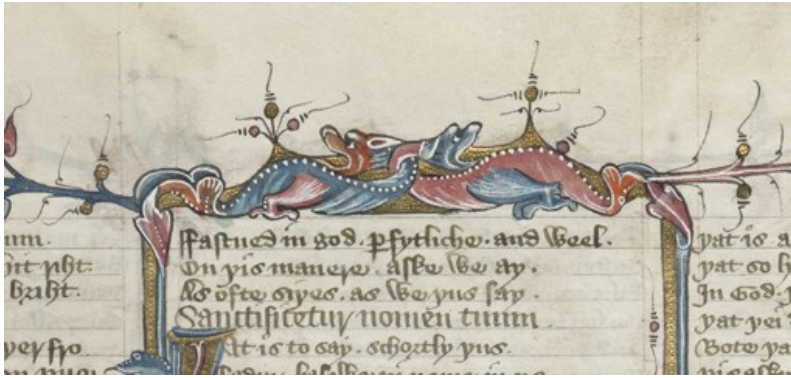 um.
hit riht.
briht.
þer fro
ffastned in god . ꝑfytliche . and weel .
On þis manere . aske we ay .
As ofte siþes . as we þus say .
Sanctificetur nomen tuum
Þat is to say . schortly þus .
þat is a
þat so h
In God . þ
þat þei
Bote þa